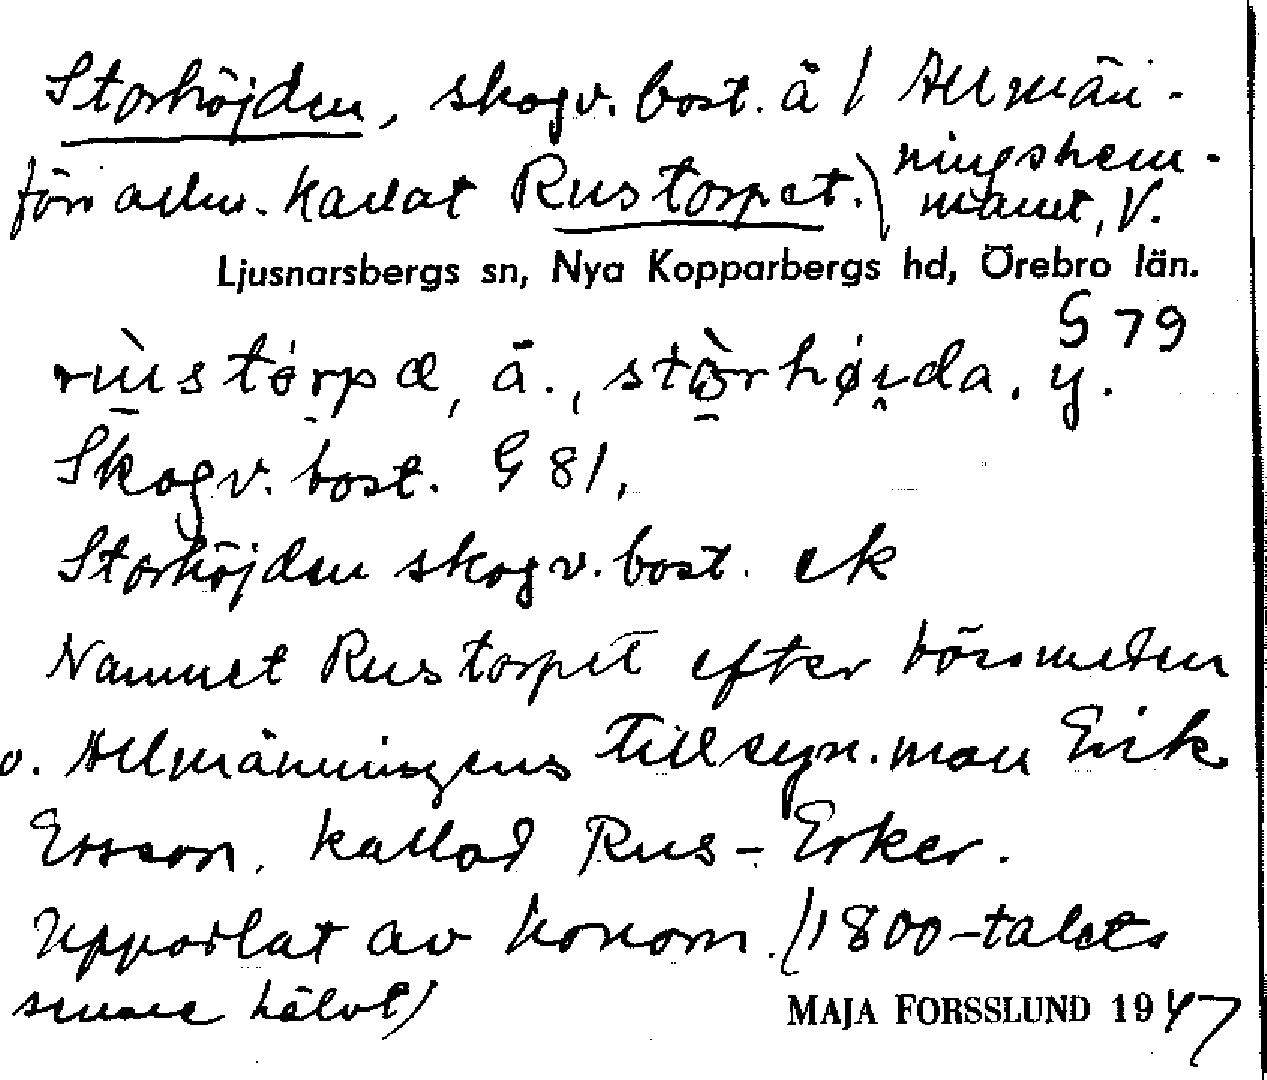 Storhöjden, skogv. bost. å / Allmän-
förr allm. kallat Rustorpet. \ ningshem-
manet, V.
Ljusnarsbergs sn, Nya Kopparbergs hd, Örebro län.
G 79
rùstórpæ, ā., stòrhøi̯da. y.
Skogv. bost. G 81.
Storhöjden skogv. bost. ek
Namnet Rustorpet efter hörsmeden
o. Allmänningens tillsyn.man Erik
Ersson, kallad Rus-Erker.
Upporlat av honom. (1800-talets
senare hälvt)
MAJA FORSSLUND 1947